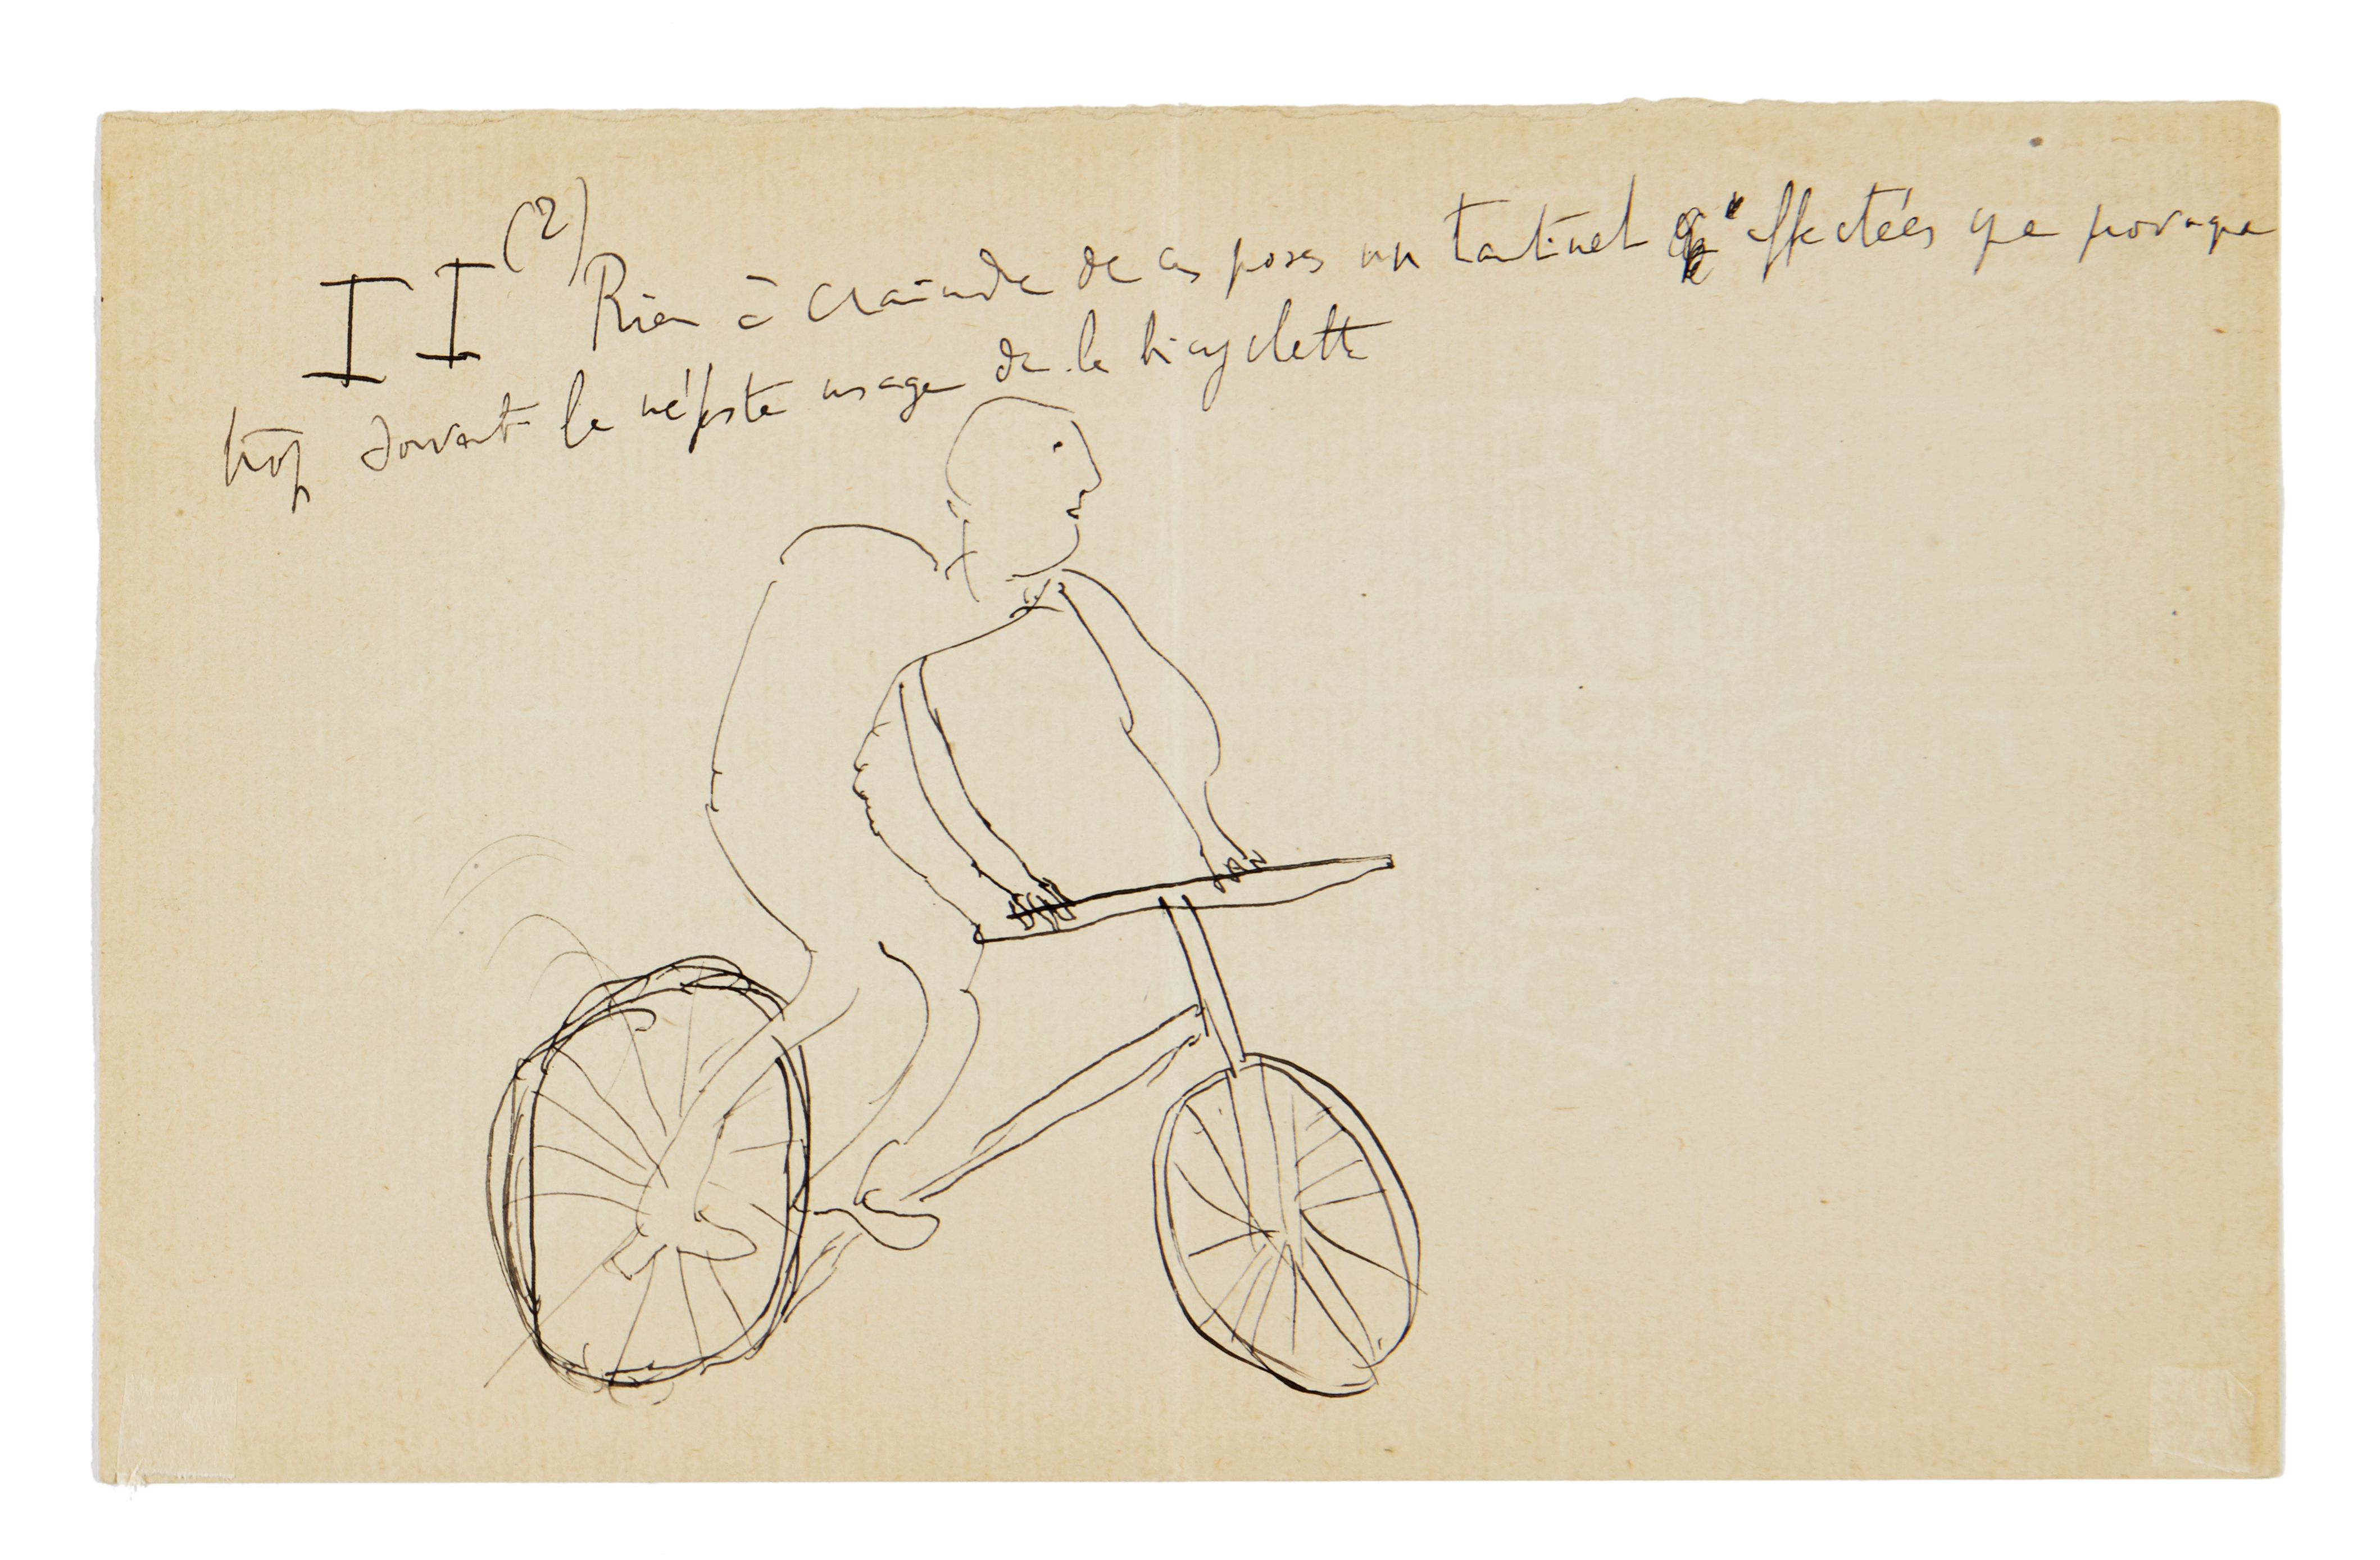 II (2) Rien à craindre de ces poses un tantinet affectées que provoque
trop souvent le néfaste usage de la bicyclette